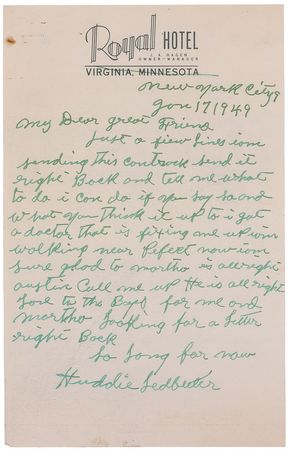 Royal HOTEL
J. A. HAGEN
OWNER-MANAGER
VIRGINIA, MINNESOTA
New York City 9
Jan 17 1949
My Dear great Friend
Just a fiew lines iom
sending this contrack send it
right Back and tell me what
to do i can do if you say so and
what you think it up to i got
a doctor that is fixing me up iom
walking near Pefect now iom
sure good to martha is all right
austin Call me up He is all right
love to the Boys for me and
martha looking for a letter
right Back
So long for now
Huddie Ledbetter